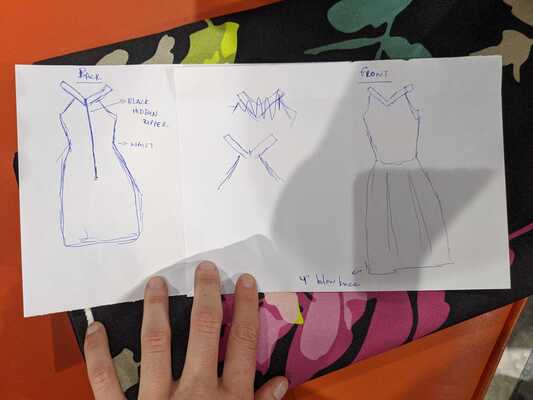 BACK
BLACK
HIDDEN
ZIPPER.
WAIST
FRONT
4" below knee